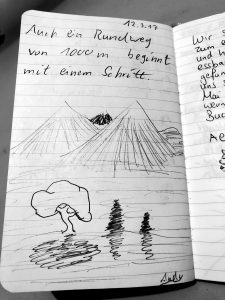 12.3.17
Auch ein Rundweg
von 1000 m beginnt
mit einem Schritt
Wir s
zum e
und h
essba
gefun
uns s
Mai
wenn
Buc